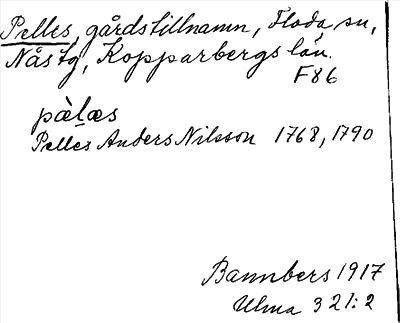 Pelles, gårdstillnamn, Floda sn,
Nås tg, Kopparbergs län.
F86
pàlæs
Pelles Anders Nilsson 1768, 1790
Bannbers 1917
Ulma 321:2